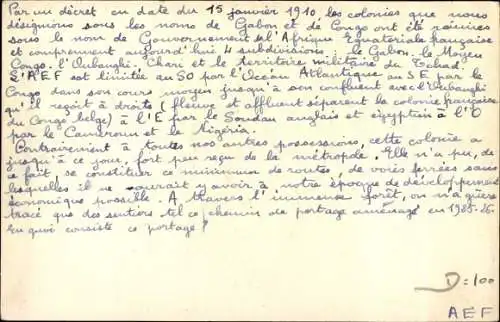 Par un décret en date du 15 janvier 1910 les colonies que nous
désignons sous les noms de Gabon et de Congo ont été réunies
sous le nom de Gouvernement gl de l'Afrique Equatoriale française
et comprennent aujourd'hui 4 subdivisions : le Gabon, le Moyen
Congo, l'Oubanghi. Chari et le territoire militaire du Tchad.
L'AEF est limitée au SO par l'Océan Atlantique au SE par le
Congo dans son cours moyen jusqu'à son confluent avec l'Oubanghi
qu'il reçoit à droite (fleuve et affluent séparent la colonie française
du Congo belge) à l'E par le Soudan anglais et égyptien à l'O
par le Cameroun et le Nigéria.
Contrairement à toutes nos autres possessions, cette colonie a
jusqu'à ce jour, fort peu reçu de la métropole. Elle n'a pu, de
ce fait, se constituer ce minimum de routes, de voies ferrées sans
lesquelles il ne saurait y avoir à notre époque de développement
économique possible. A travers l'immense forêt, on n'a guère
tracé que des sentiers tel ce chemin de portage aménagé en 1925-26.
En quoi consiste ce portage ?
D : 100
AEF